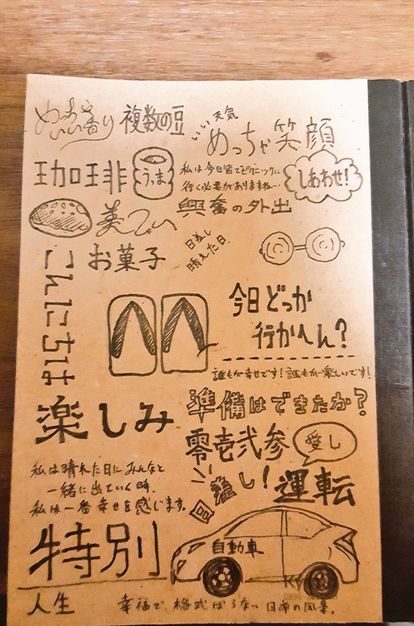 めっちゃ
いい香り
複数の豆
いい天気
めっちゃ笑顔
珈琲
うっま
私は今日皆でピクニックに
行く必要がありますね…
しあわせ!
美つい
興奮の外出
お菓子
日差し
晴れた日
こんにちは
今日どっか
行かへん?
誰もが幸せです!誰もが楽しいです!
楽しみ
準備はできたか?
零壱弐参
愛し
私は晴れた日にみんなと
一緒に出ていく時、
私は一番幸せを感じます。
し!
運転
特別
自動車
人生
幸福で、格式ばらない日常の風景。